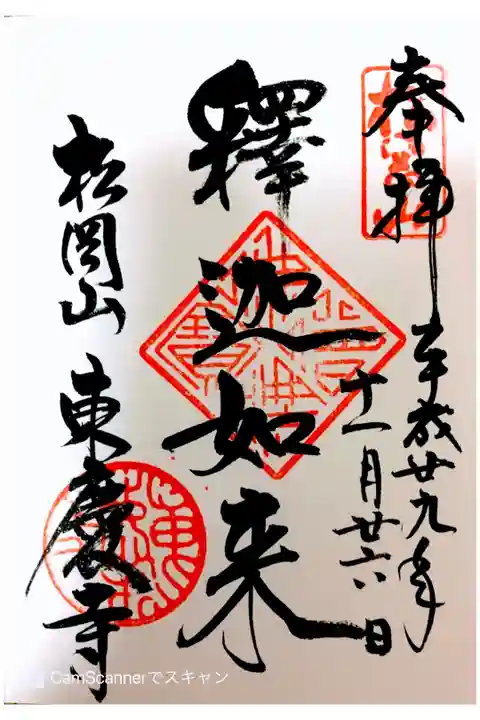 奉拝
平成廿九年
十一月廿六日
釋迦如来
松岡山 東慶寺
CamScannerでスキャン